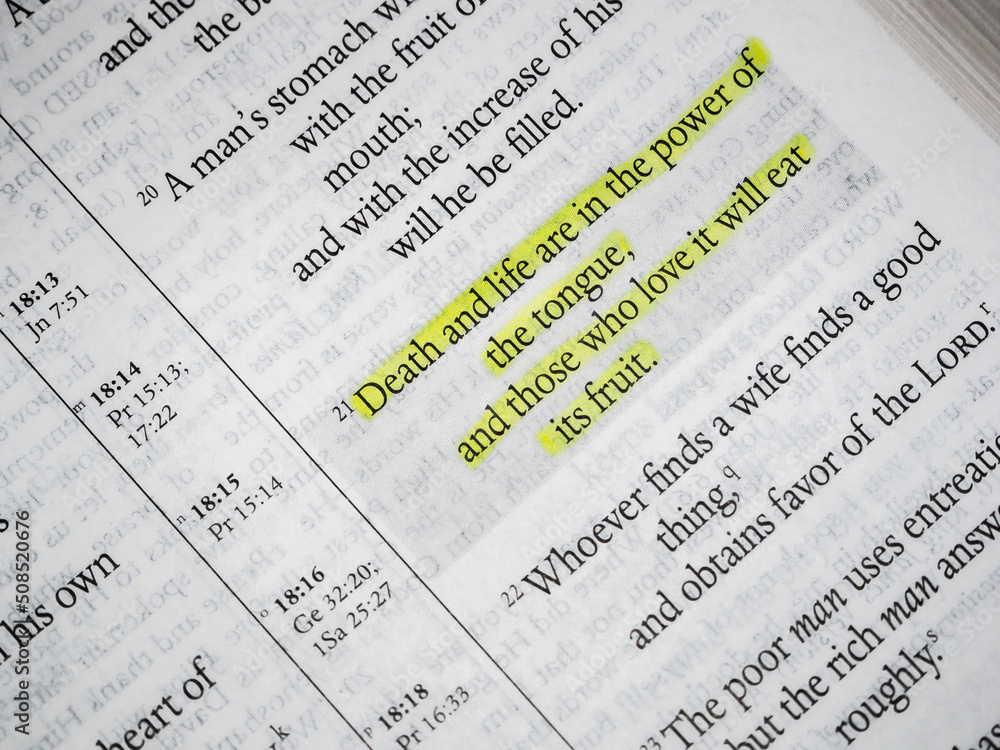 and the
the ba
20 A man's stomach
with the fruit of
mouth;
and with the increase of his
will he be filled.
21 Death and life are in the power of
the tongue,
and those who love it will eat
its fruit.
22 Whoever finds a wife finds a good
thing,q
and obtains favor of the LORD.r
23 The poor man uses entreati
but the rich man answ
roughly.s
18:13
Jn 7:51
m 18:14
Pr 15:13;
17:22
n 18:15
Pr 15:14
o 18:16
Ge 32:20;
1Sa 25:27
p 18:18
Pr 16:33
his own
heart of
k
Adobe Stock | #508520676